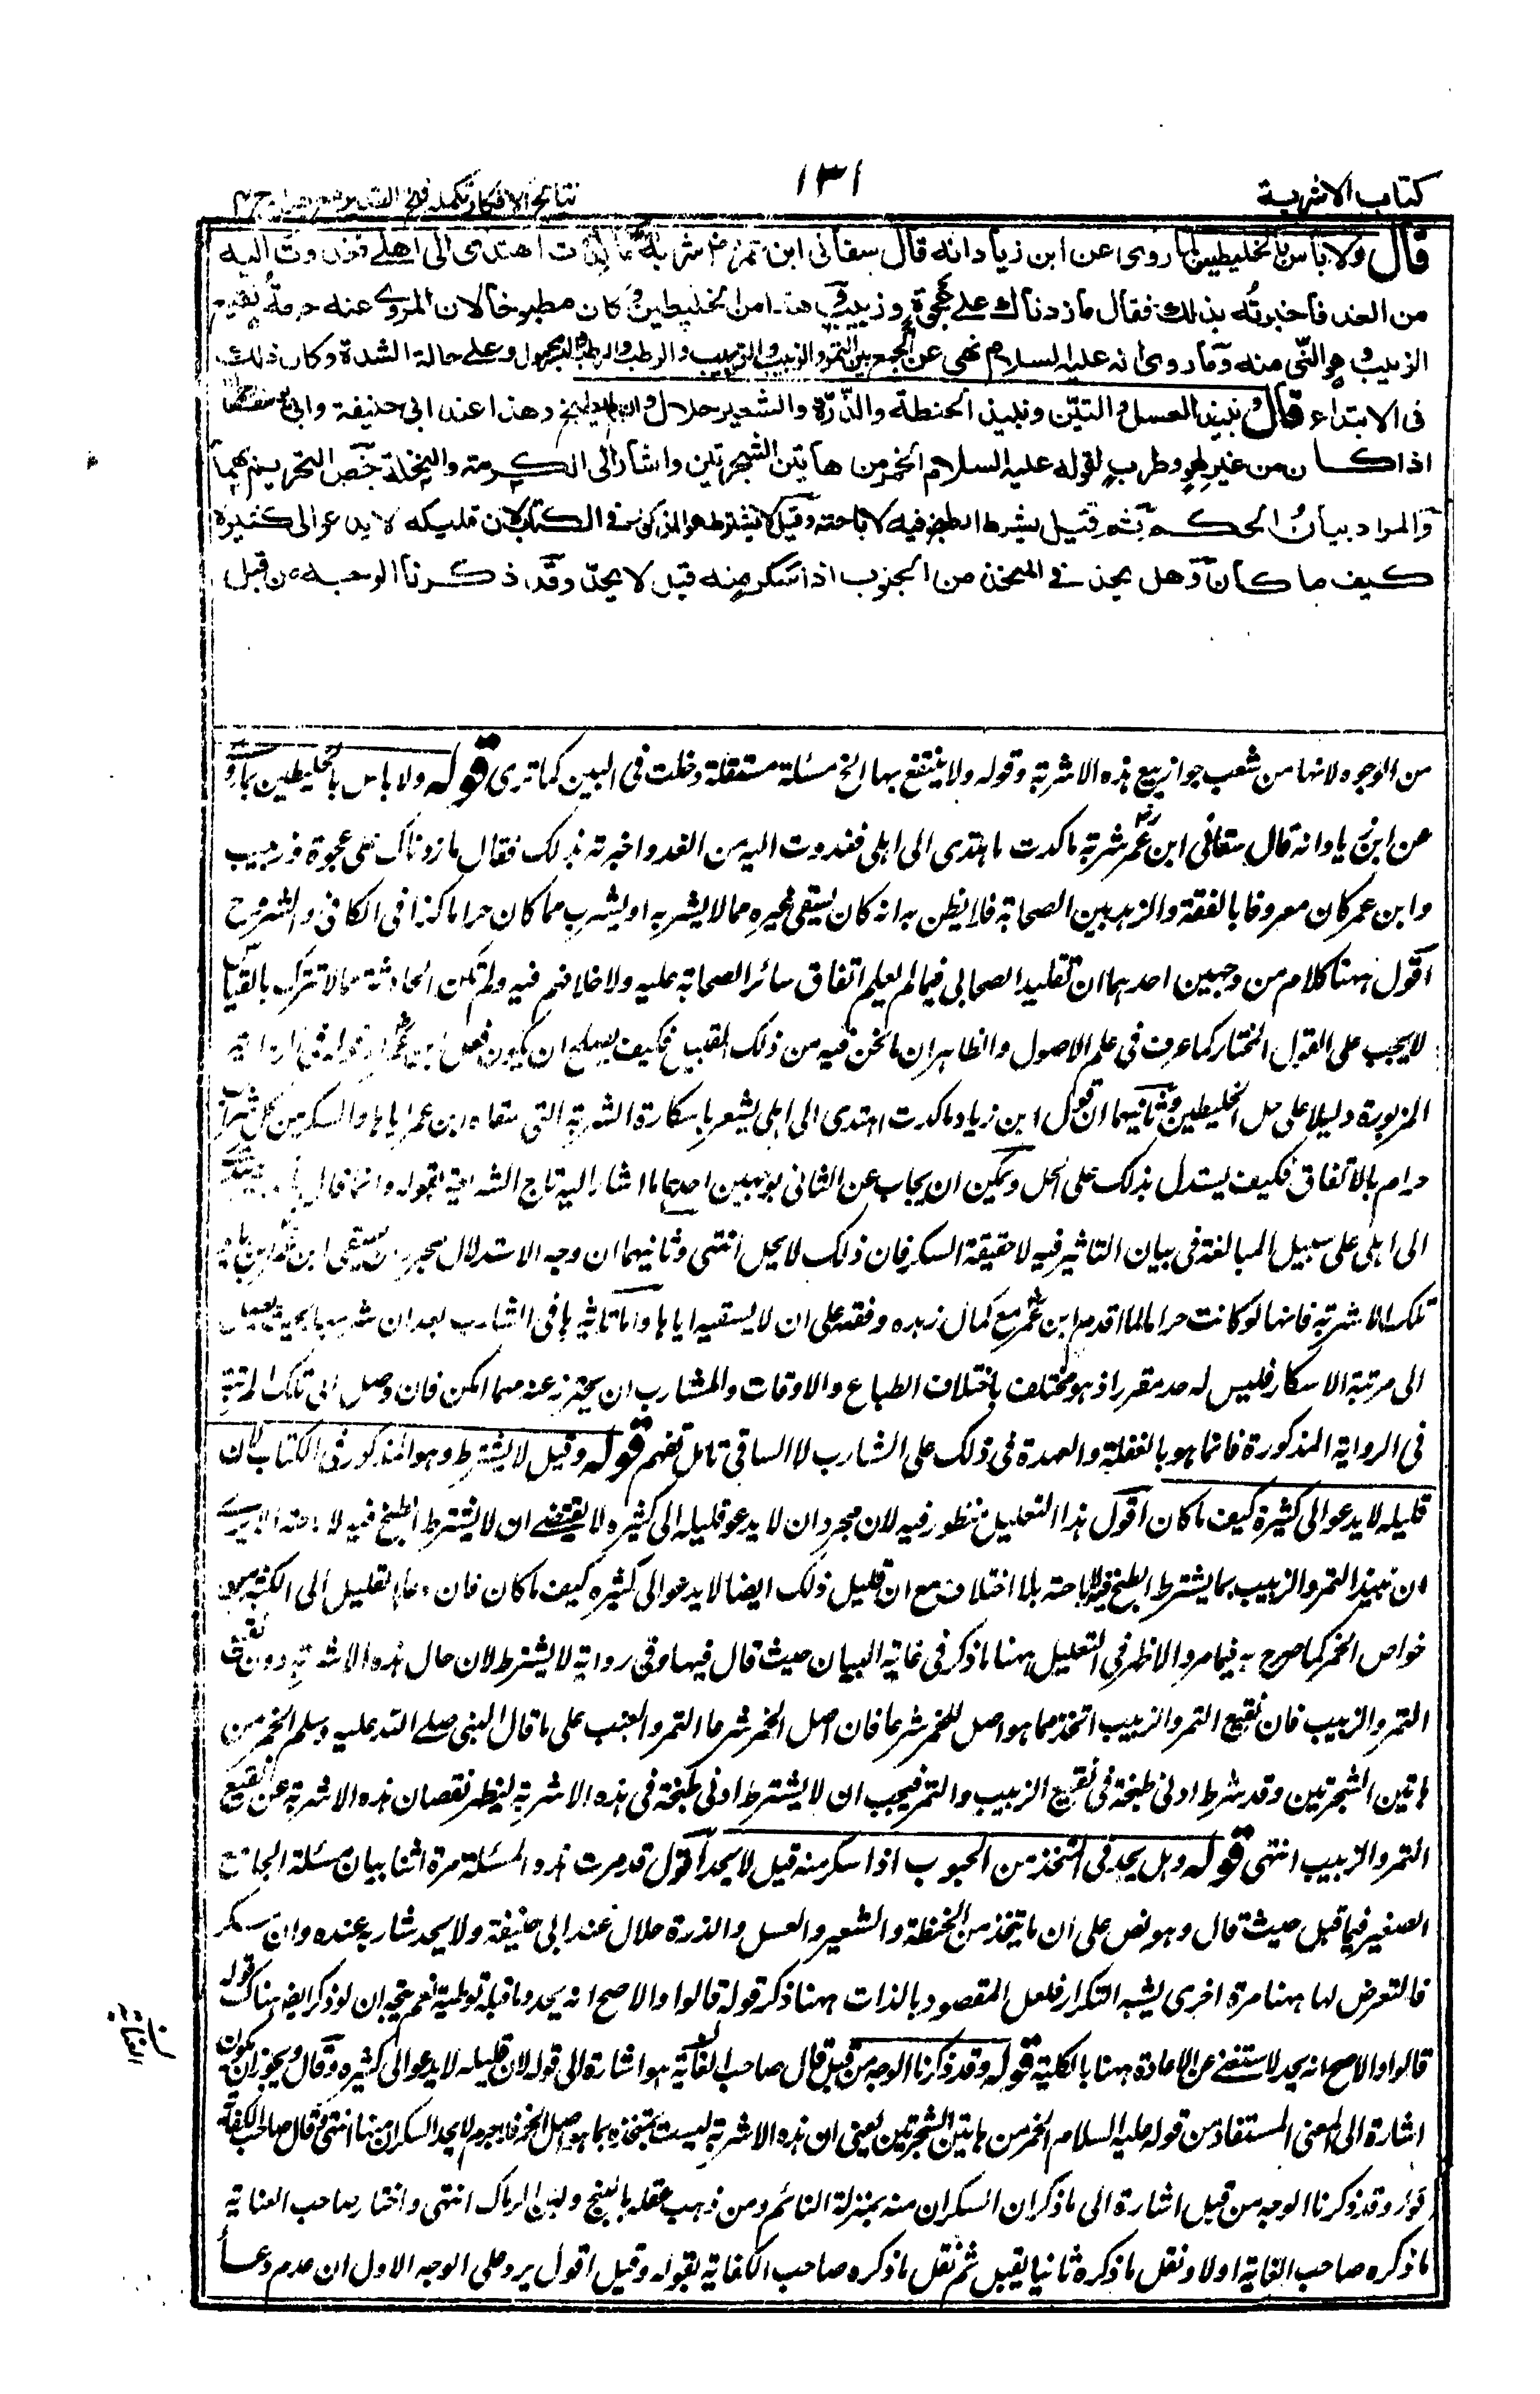 كتاب الاشربة
١٣١
نتائج الافكار تكملة فتح القدير مع هداية ج ٤
قال ولا باس بالخليطين لما روى عن ابن زياد انه قال سقاني ابن عمر رض شربة ما كدت اهتدى الى اهلى فغدوت اليه
من الغد فاخبرته بذلك فقال ما زدناك على عجوة وزبيب وهذا من الخليطين وكان مطبوخا لان المروى عنه حرمة نقيع
الزبيب وهو النى منه وما روى انه عليه السلام نهى عن الجمع بين التمر والزبيب والزبيب والرطب والرطب والبسر محمول على حالة الشدة وكان ذلك
فى الابتداء قال ونبيذ العسل والتين ونبيذ الحنطة والذرة والشعير حلال وان لم يطبخ وهذا عند ابى حنيفة وابى يوسف
اذا كان من غير لهو وطرب لقوله عليه السلام الخمر من هاتين الشجرتين واشار الى الكرمة والنخلة خص التحريم بهما
والمراد بيان الحكم ثم قيل يشترط الطبخ فيه لاباحته وقيل لا يشترط وهو المذكور فى الكتاب لان قليله لا يدعو الى كثيره
كيف ما كان وهل يحد فى المتخذ من الحبوب اذا سكر منه قيل لا يحد وقد ذكرنا الوجه من قبل
من الوجوه لانها من شعب جواز بيع هذه الاشربة وقوله ولا ينتفع بها الخ مسئلة مستقلة دخلت فى البين كما ترى قوله ولا باس بالخليطين لما روى
عن ابن زياد انه قال سقانى ابن عمر شربة ما كدت اهتدى الى اهلى فغدوت اليه من الغد واخبرته بذلك فقال ما زدناك على عجوة وزبيب
وابن عمر كان معروفا بالفقه والزهد بين الصحابة فلا يظن به انه كان يسقى غيره مما لا يشربه او يشرب مما كان حراما كذا فى الكافى والشروح
اقول ههنا كلام من وجهين احدهما ان تقليد الصحابى فيما لم يعلم اتفاق سائر الصحابة عليه ولا خلافهم فيه ولم تكن الحادثة مما لا تترك بالقياس
لا يجب على القول المختار كما عرف فى علم الاصول والظاهر ان ما نحن فيه من ذلك القبيل فكيف يصلح ان يكون فعل ابن عمر او قوله فى الرواية
المزبورة دليلا على حل الخليطين وثانيهما ان قول ابن زياد ما كدت اهتدى الى اهلى يشعر باسكارة الشربة التى سقاه ابن عمر اياها والسكر من كل شراب
حرام بالاتفاق فكيف يستدل بذلك على الحل ويمكن ان يجاب عن الثانى بوجهين احدهما ما اشار اليه تاج الشريعة بقوله وانما قال
الى اهلى على سبيل المبالغة فى بيان التاثير فيه لا حقيقة السكر فان ذلك لا يحل انتهى وثانيهما ان وجه الاستدلال بمجرد ان يسقى ابن عمر ابن زياد
تلك الاشربة فانها لو كانت حراما لما اقدم ابن عمر مع كمال زهده وفقهه على ان لا يسقيه اياها واما تاثيرها فى الشارب بعد ان شربها بحيث يصل
الى مرتبة الاسكار فليس له حد مقرر اذ هو مختلف باختلاف الطباع والاوقات والمشارب ان يحترز عنه مهما امكن فان وصل الى تلك المرتبة
فى الرواية المذكورة فانما هو بالغفلة والعهدة فى ذلك على الشارب لا الساقى تامل تفهم قوله وقيل لا يشترط وهو المذكور فى الكتاب لان
قليله لا يدعو الى كثيرة كيف ما كان اقول هذا التعليل منظور فيه لان مجرد ان لا يدعو قليله الى كثيره لا يقتضى ان لا يشترط الطبخ فيه لاباحته الا يرى
ان نبيذ التمر والزبيب مما يشترط الطبخ فيه لاباحته بلا اختلاف مع ان قليل ذلك ايضا لا يدعو الى كثيره كيف ما كان فان دعاء القليل الى الكثير من
خواص الخمر كما صرح به فيما مر والاظهر فى التعليل ههنا ما ذكر فى غاية البيان حيث قال فيها وفى رواية لا يشترط لان حال هذه الاشربة دون نقيع
التمر والزبيب فان نقيع التمر والزبيب اتخذ مما هو اصل للخمر شرعا فان اصل الخمر شرعا التمر والعنب على ما قال النبى صلى الله عليه وسلم الخمر من
هاتين الشجرتين وقد شرط ادنى طبخة فى نقيع الزبيب والتمر فيجب ان لا يشترط ادنى طبخة فى هذه الاشربة ليظهر نقصان هذه الاشربة عن نقيع
التمر والزبيب انتهى قوله وهل يحد فى المتخذ من الحبوب اذا سكر منه قيل لا يحد اقول قد مرت هذه المسئلة مرة اثناء بيان مسئلة الجامع
الصغير فيما قبل حيث قال وهو نص على ان ما يتخذ من الحنطة والشعير والعسل والذرة حلال عند ابى حنيفة ولا يحد شاربه عنده وان سكر
فالتعرض لها ههنا مرة اخرى يشبه التكرار فلعل المقصود بالذات ههنا ذكر قوله قالوا والاصح انه يحد وما قبله توطية نعم يتجه ان لو ذكر ايضا هناك قوله
قالوا والاصح انه يحد لاستغنى عن الاعادة ههنا بالكلية قوله وقد ذكرنا الوجه من قبل قال صاحب الغاية هو اشارة الى قوله لان قليله لا يدعو الى كثيره وقال ويجوز ان يكون
اشارة الى المعنى المستفاد من قوله عليه السلام الخمر من هاتين الشجرتين يعنى ان هذه الاشربة ليست بمتخذة مما هو اصل الخمر فلا جرم لا يحد السكران منها انتهى وقال صاحب الكفاية
قوله وقد ذكرنا الوجه من قبل اشارة الى ما ذكر ان السكران منه بمنزلة النائم ومن ذهب عقله بالبنج ولبن الرماك انتهى واختار صاحب العناية
ما ذكره صاحب الغاية اولا ونقل ما ذكره ثانيا بقيل ثم نقل ما ذكره صاحب الكفاية بقوله وقيل اقول يرد على الوجه الاول ان عدم دعا